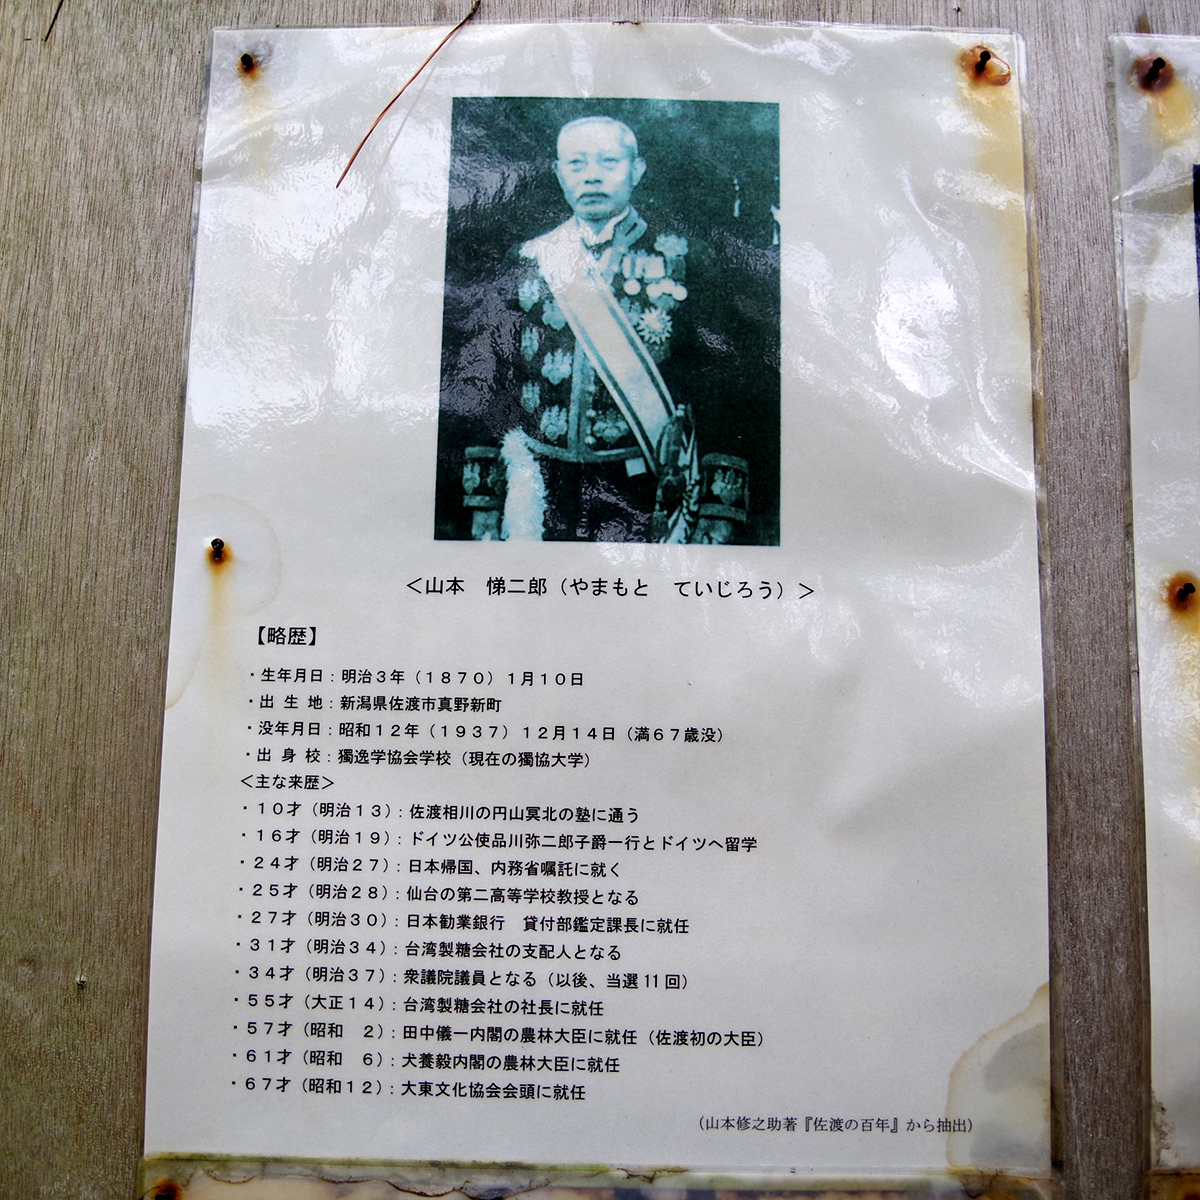 ＜山本　悌二郎（やまもと　ていじろう）＞
【略歴】
・生年月日：明治３年（１８７０）１月１０日
・出 生 地：新潟県佐渡市真野新町
・没年月日：昭和１２年（１９３７）１２月１４日（満６７歳没）
・出 身 校：獨逸学協会学校（現在の獨協大学）
＜主な来歴＞
・１０才（明治１３）：佐渡相川の円山冥北の塾に通う
・１６才（明治１９）：ドイツ公使品川弥二郎子爵一行とドイツへ留学
・２４才（明治２７）：日本帰国、内務省嘱託に就く
・２５才（明治２８）：仙台の第二高等学校教授となる
・２７才（明治３０）：日本勧業銀行　貸付部鑑定課長に就任
・３１才（明治３４）：台湾製糖会社の支配人となる
・３４才（明治３７）：衆議院議員となる（以後、当選11回）
・５５才（大正１４）：台湾製糖会社の社長に就任
・５７才（昭和　２）：田中儀一内閣の農林大臣に就任（佐渡初の大臣）
・６１才（昭和　６）：犬養毅内閣の農林大臣に就任
・６７才（昭和１２）：大東文化協会会頭に就任
（山本修之助著『佐渡の百年』から抽出）